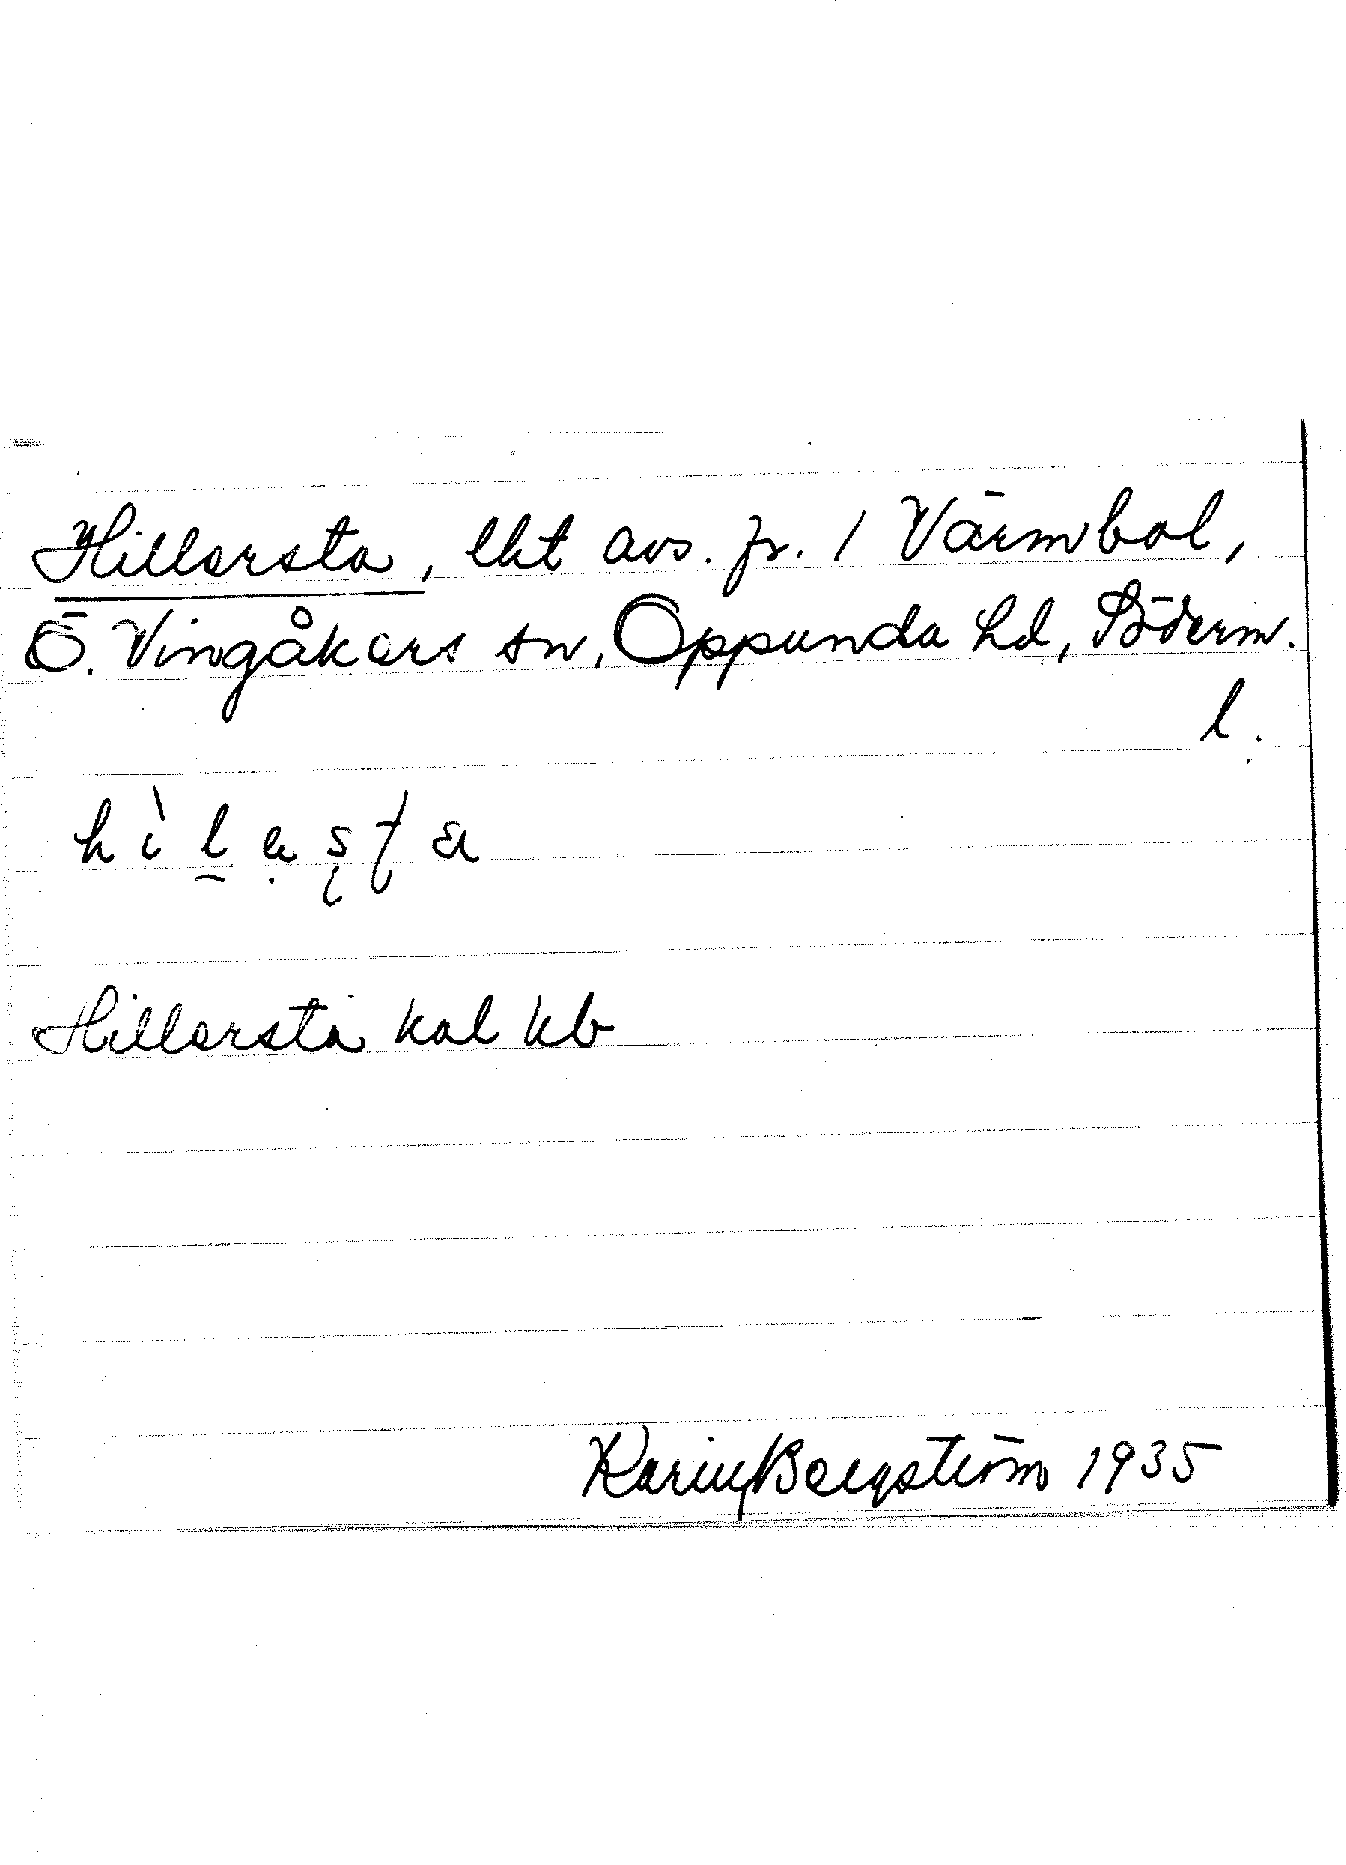 Hillersta, lht avs. fr. 1 Värmbol,
Ö. Vingåkers sn, Oppunda hd, Söderm.
l.
hìlaʂʈa
Hillersta kal kb
Karin Bergström 1935